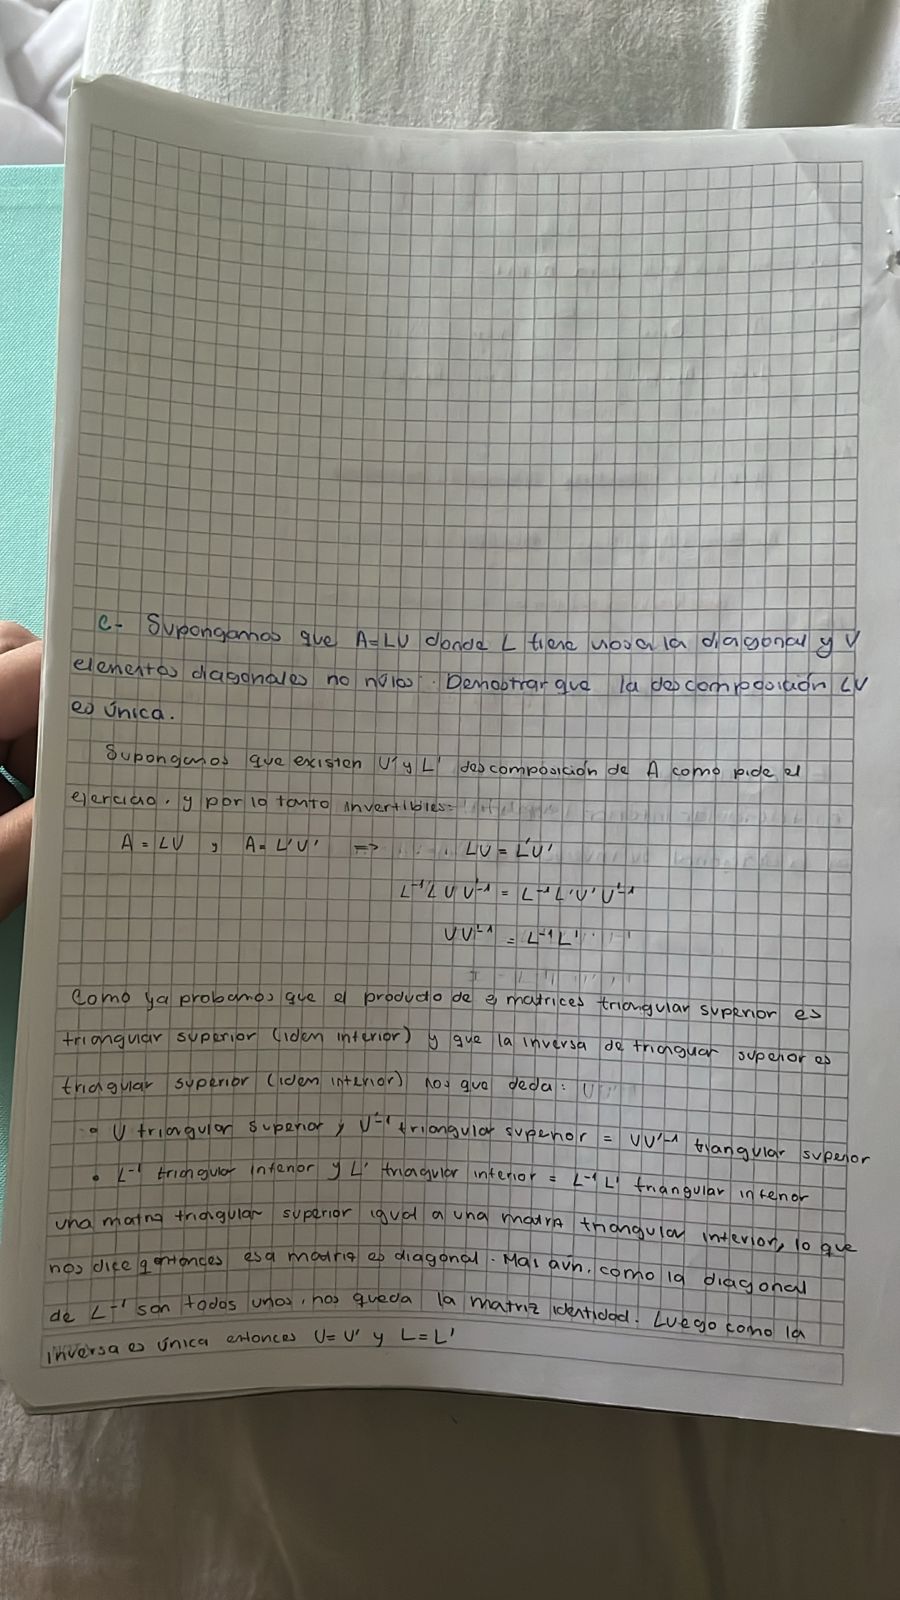 e- Supongamos que A=LU donde L tiene unos a la diagonal y U
elementos diagonales no nulos. Demostrar que la descomposición LU
es única.
Supongamos que existen U' y L' descomposición de A como pide el
ejercicio, y por lo tanto invertibles:
A = LU , A = L'U' => LU = L'U'
L⁻¹LUU'⁻¹ = L⁻¹L'U'U'⁻¹
UU'⁻¹ = L⁻¹L'
Como ya probamos que el producto de 2 matrices triangular superior es
triangular superior (idem inferior) y que la inversa de triangular superior es
triagular superior (idem inferior) nos que deda:
• U triangular superior y U'⁻¹ triangular superior = UU'⁻¹ triangular superior
• L⁻¹ triangular inferior y L' triagular inferior = L⁻¹L' triangular inferior
una matriz triangular superior igual a una matriz triangular inferior, lo que
nos dice q entonces esa matriz es diagonal. Mas aún, como la diagonal
de L⁻¹ son todos unos, nos queda la matriz identidad. Luego como la
inversa es única entonces U=U' y L=L'